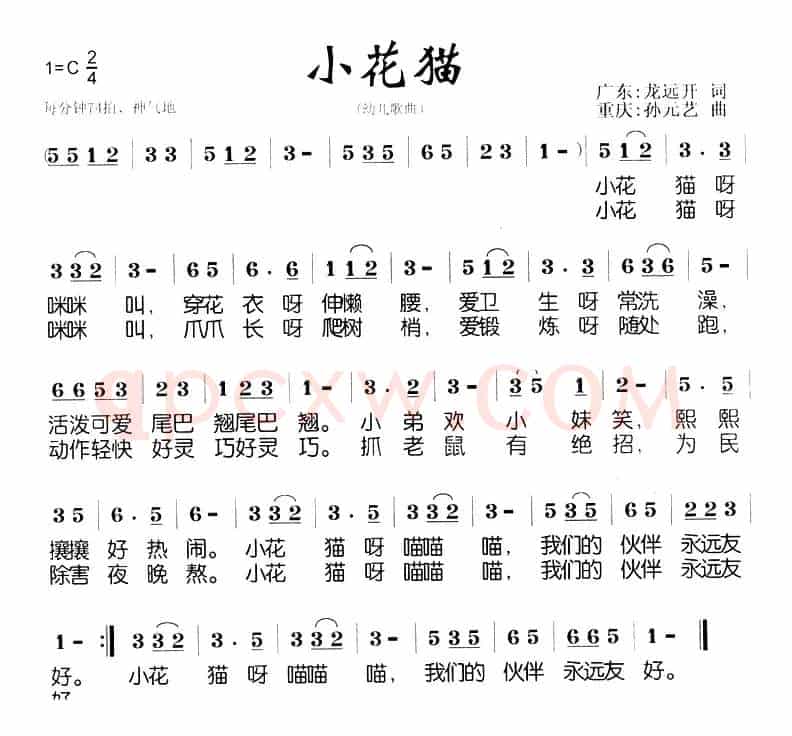 小花猫
1=C 2/4
每分钟74拍、神气地
(幼儿歌曲)
广东:龙远开 词
重庆:孙元艺 曲
(5512 | 33 | 0512 | 3- | 0535 | 65 | 23 | 1- ) | 512 | 3·3 |
小花 猫呀
小花 猫呀
332 | 3- | 65 | 6·6 | 112 | 3- | 512 | 3·3 | 636 | 5- |
咪咪 叫，穿花 衣呀 伸懒 腰，爱卫 生呀 常洗 澡，
咪咪 叫，爪爪 长呀 爬树 梢，爱锻 炼呀 随处 跑，
6653 | 23 | 0123 | 1- | 3·2 | 3·3 | 35 | 1 | 2- | 5·5 |
活泼可爱 尾巴 翘尾巴 翘。小弟欢小妹笑，熙熙
动作轻快 好灵 巧好灵 巧。抓老鼠有绝招，为民
35 | 6·5 | 6- | 332 | 3·5 | 332 | 3- | 535 | 65 | 223 |
攘攘 好热 闹。小花 猫呀 喵喵 喵，我们的 伙伴 永远友
除害 夜晚 熬。小花 猫呀 喵喵 喵，我们的 伙伴 永远友
1- :‖ 332 | 3·5 | 332 | 3- | 0535 | 65 | 665 | 1- | 1- ‖
好。小花 猫呀 喵喵 喵，我们的 伙伴 永远友 好。
qpcxw.COM